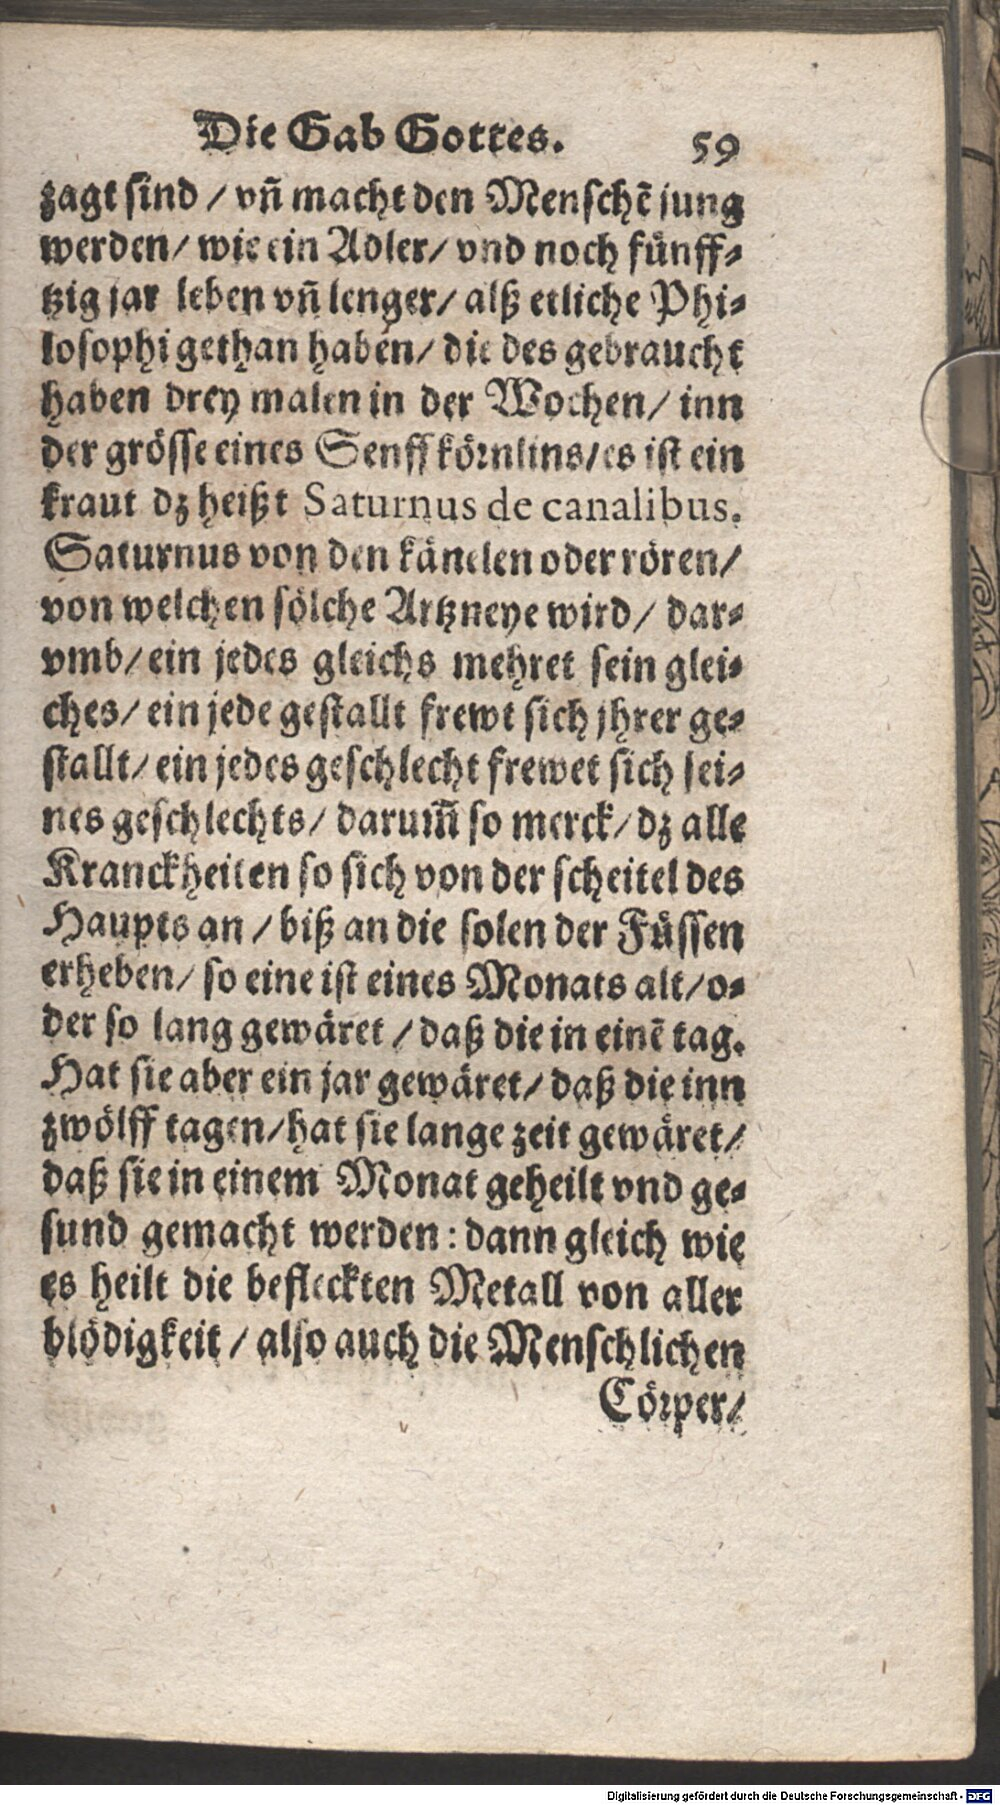 Die Gab Gottes. 59
zagt sind / vn̄ macht den Menschē jung
werden/ wie ein Adler/ vnd noch fünff⸗
tzig jar leben vn̄ lenger/ alß etliche Phi⸗
losophi gethan haben/ die des gebraucht
haben drey malen in der Wochen/ inn
der grösse eines Senff körnlins/es ist ein
kraut dz heißt Saturnus de canalibus.
Saturnus von den känelen oder rören/
von welchen sölche Artzneye wird/ dar⸗
vmb/ ein jedes gleichs mehret sein glei⸗
ches/ ein jede gestallt frewt sich jhrer ge⸗
stallt/ ein jedes geschlecht frewet sich sei⸗
nes geschlechts/ darum̄ so merck/ dz alle
Kranckheiten so sich von der scheitel des
Haupts an / biß an die solen der Füssen
erheben/ so eine ist eines Monats alt/o⸗
der so lang gewäret / daß die in einē tag.
Hat sie aber ein jar gewäret/ daß die inn
zwölff tagen/hat sie lange zeit gewäret/
daß sie in einem Monat geheilt vnd ge⸗
sund gemacht werden: dann gleich wie
es heilt die befleckten Metall von aller
blödigkeit / also auch die Menschlichen
Cörper/
Digitalisierung gefördert durch die Deutsche Forschungsgemeinschaft - DFG